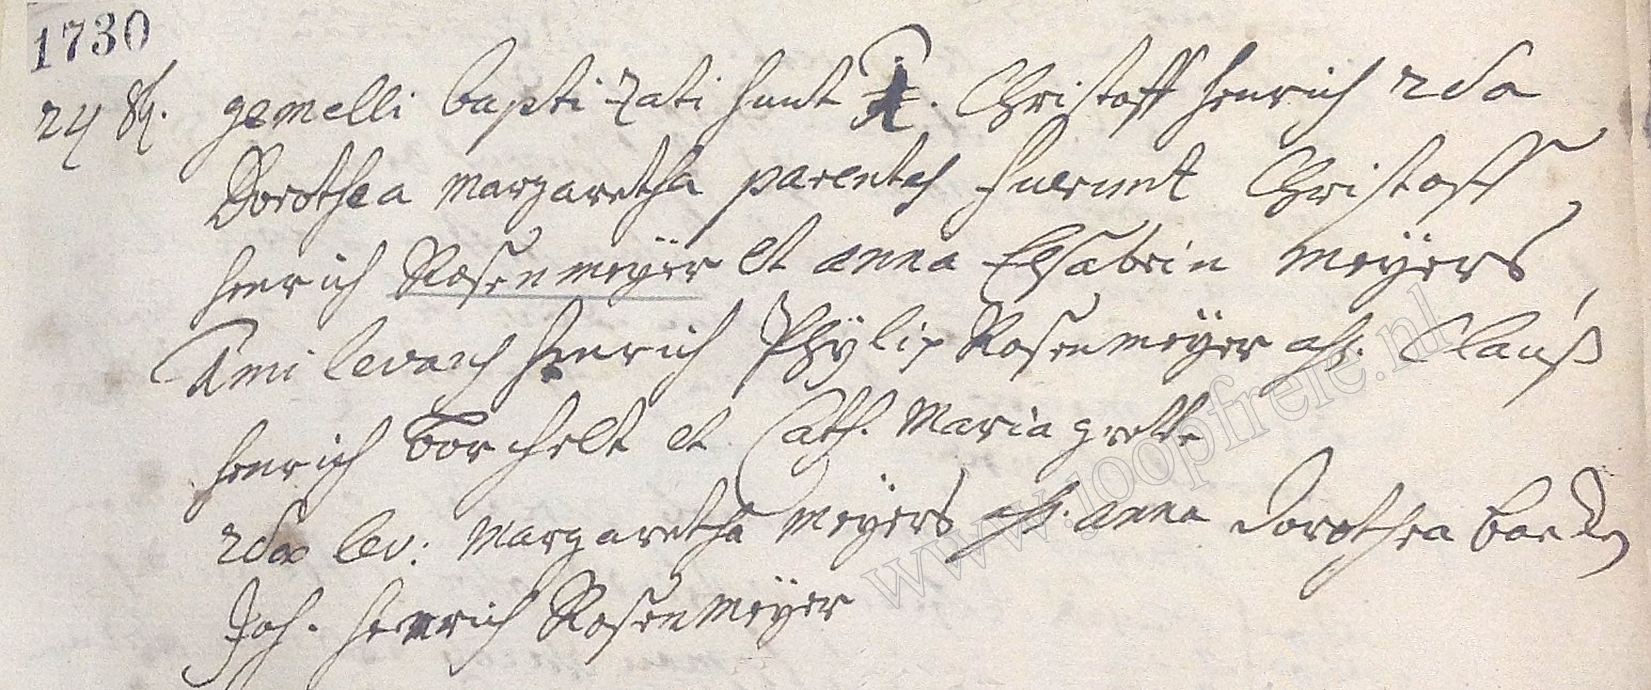 1730
24 8b. gemelli baptizati sunt 1. Christoff Henrich 2da
Dorothea Margaretha parentes fuerunt Christoff
Henrich Rosenmeÿer et anna Elsabein Meÿers
1mi levans Henrich Phÿlip Rosenmeÿer ass. Clauß
Henrich Borchelt et Cath. Maria grette
2dae lev: Margaretha Meÿers ass. anna Dorothea
Joh. Henrich Rosenmeÿer
www.joopfreie.nl